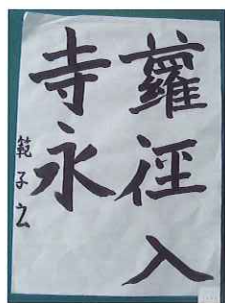 蘿徑入
寺永
範子云